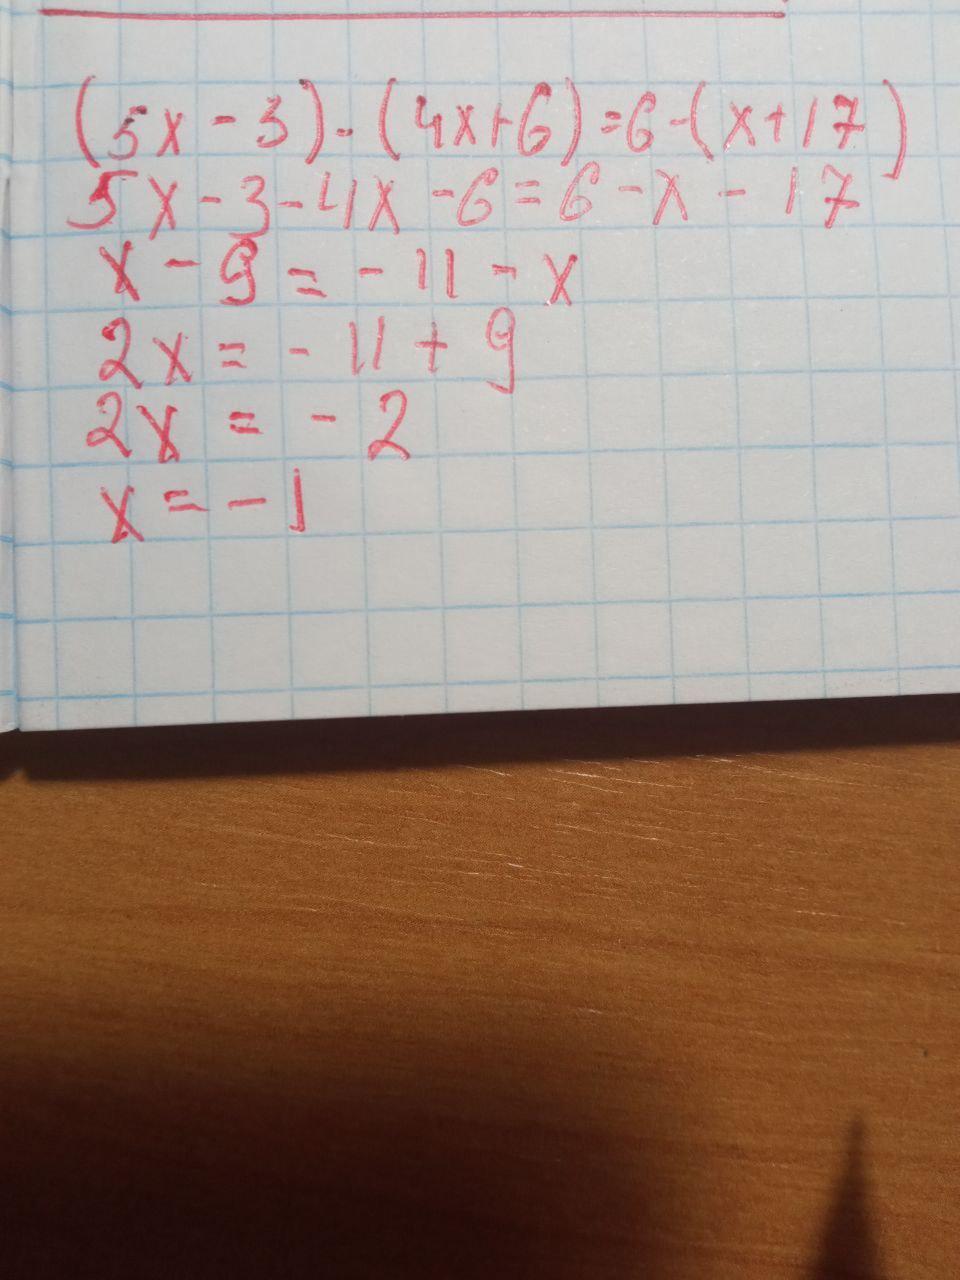 (5x - 3) - (4x+6) = 6 - (x+17)
5x - 3 - 4x - 6 = 6 - x - 17
x - 9 = - 11 - x
2x = - 11 + 9
2x = - 2
x = - 1